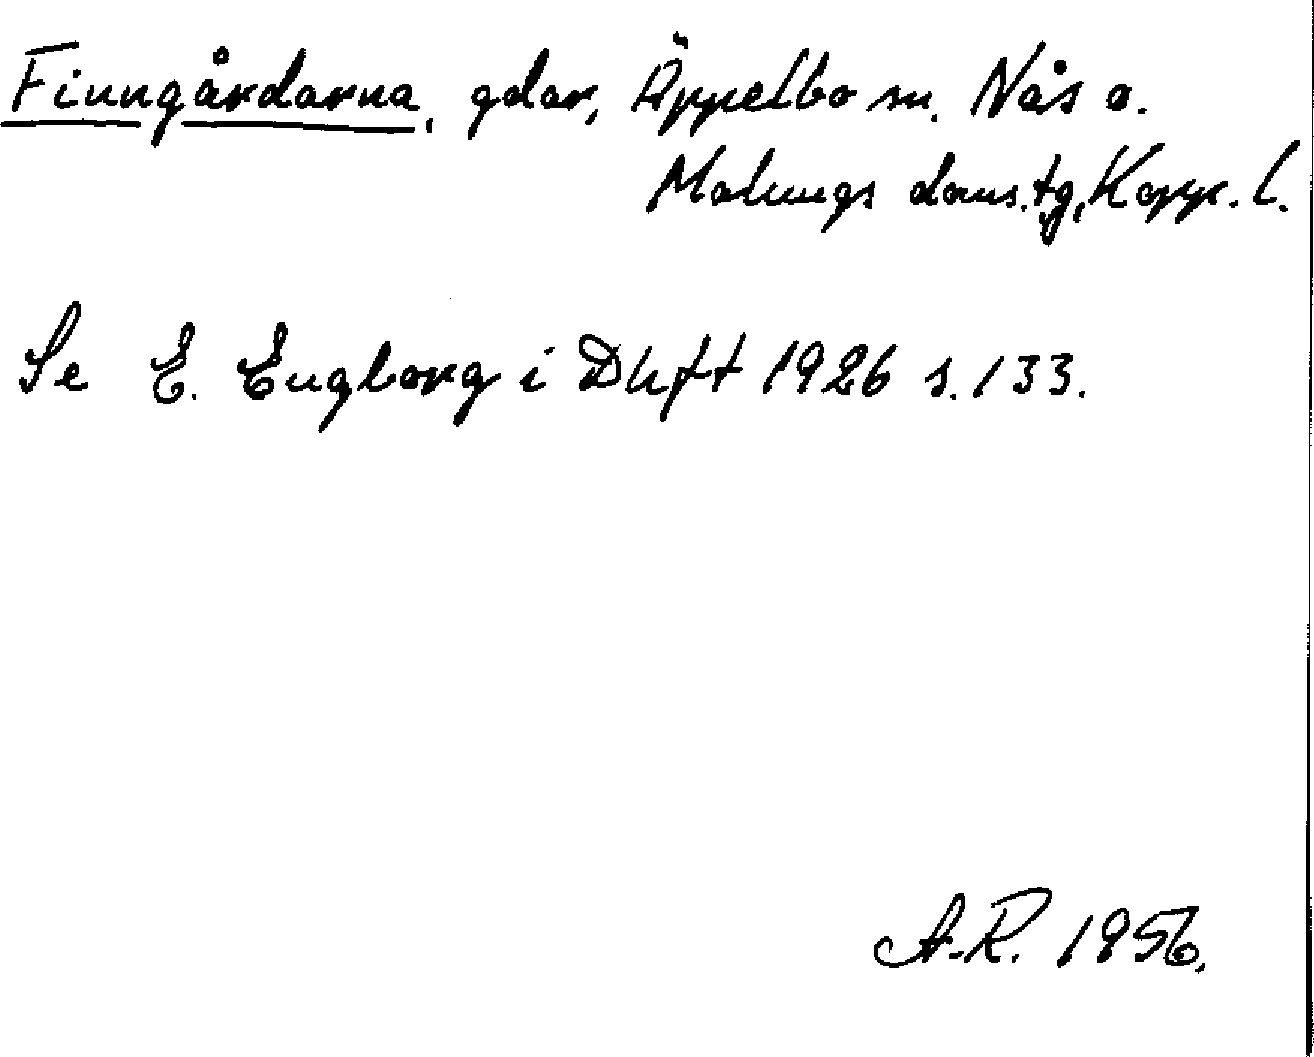 Finngårdarna, gdar, Äppelbo sn. Nås o.
Malungs doms.tg, Kopp. l.
Se E. Engborg i Dhft 1926 s. 133.
A.R. 1956.